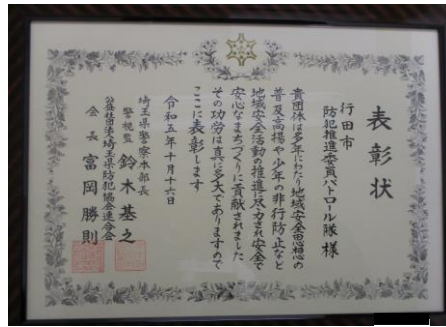 表彰状
行田市
防犯推進委員パトロール隊 様
貴団体は多年にわたり地域安全思想の
普及高揚や少年の非行防止など
地域安全活動の推進に尽力され安全で
安心なまちづくりに貢献されました
その功労は真に多大でありますので
ここに表彰します
令和五年十月十六日
埼玉県警察本部長
警視監 鈴木基之
公益社団法人埼玉県防犯協会連合会
会長 富岡勝則